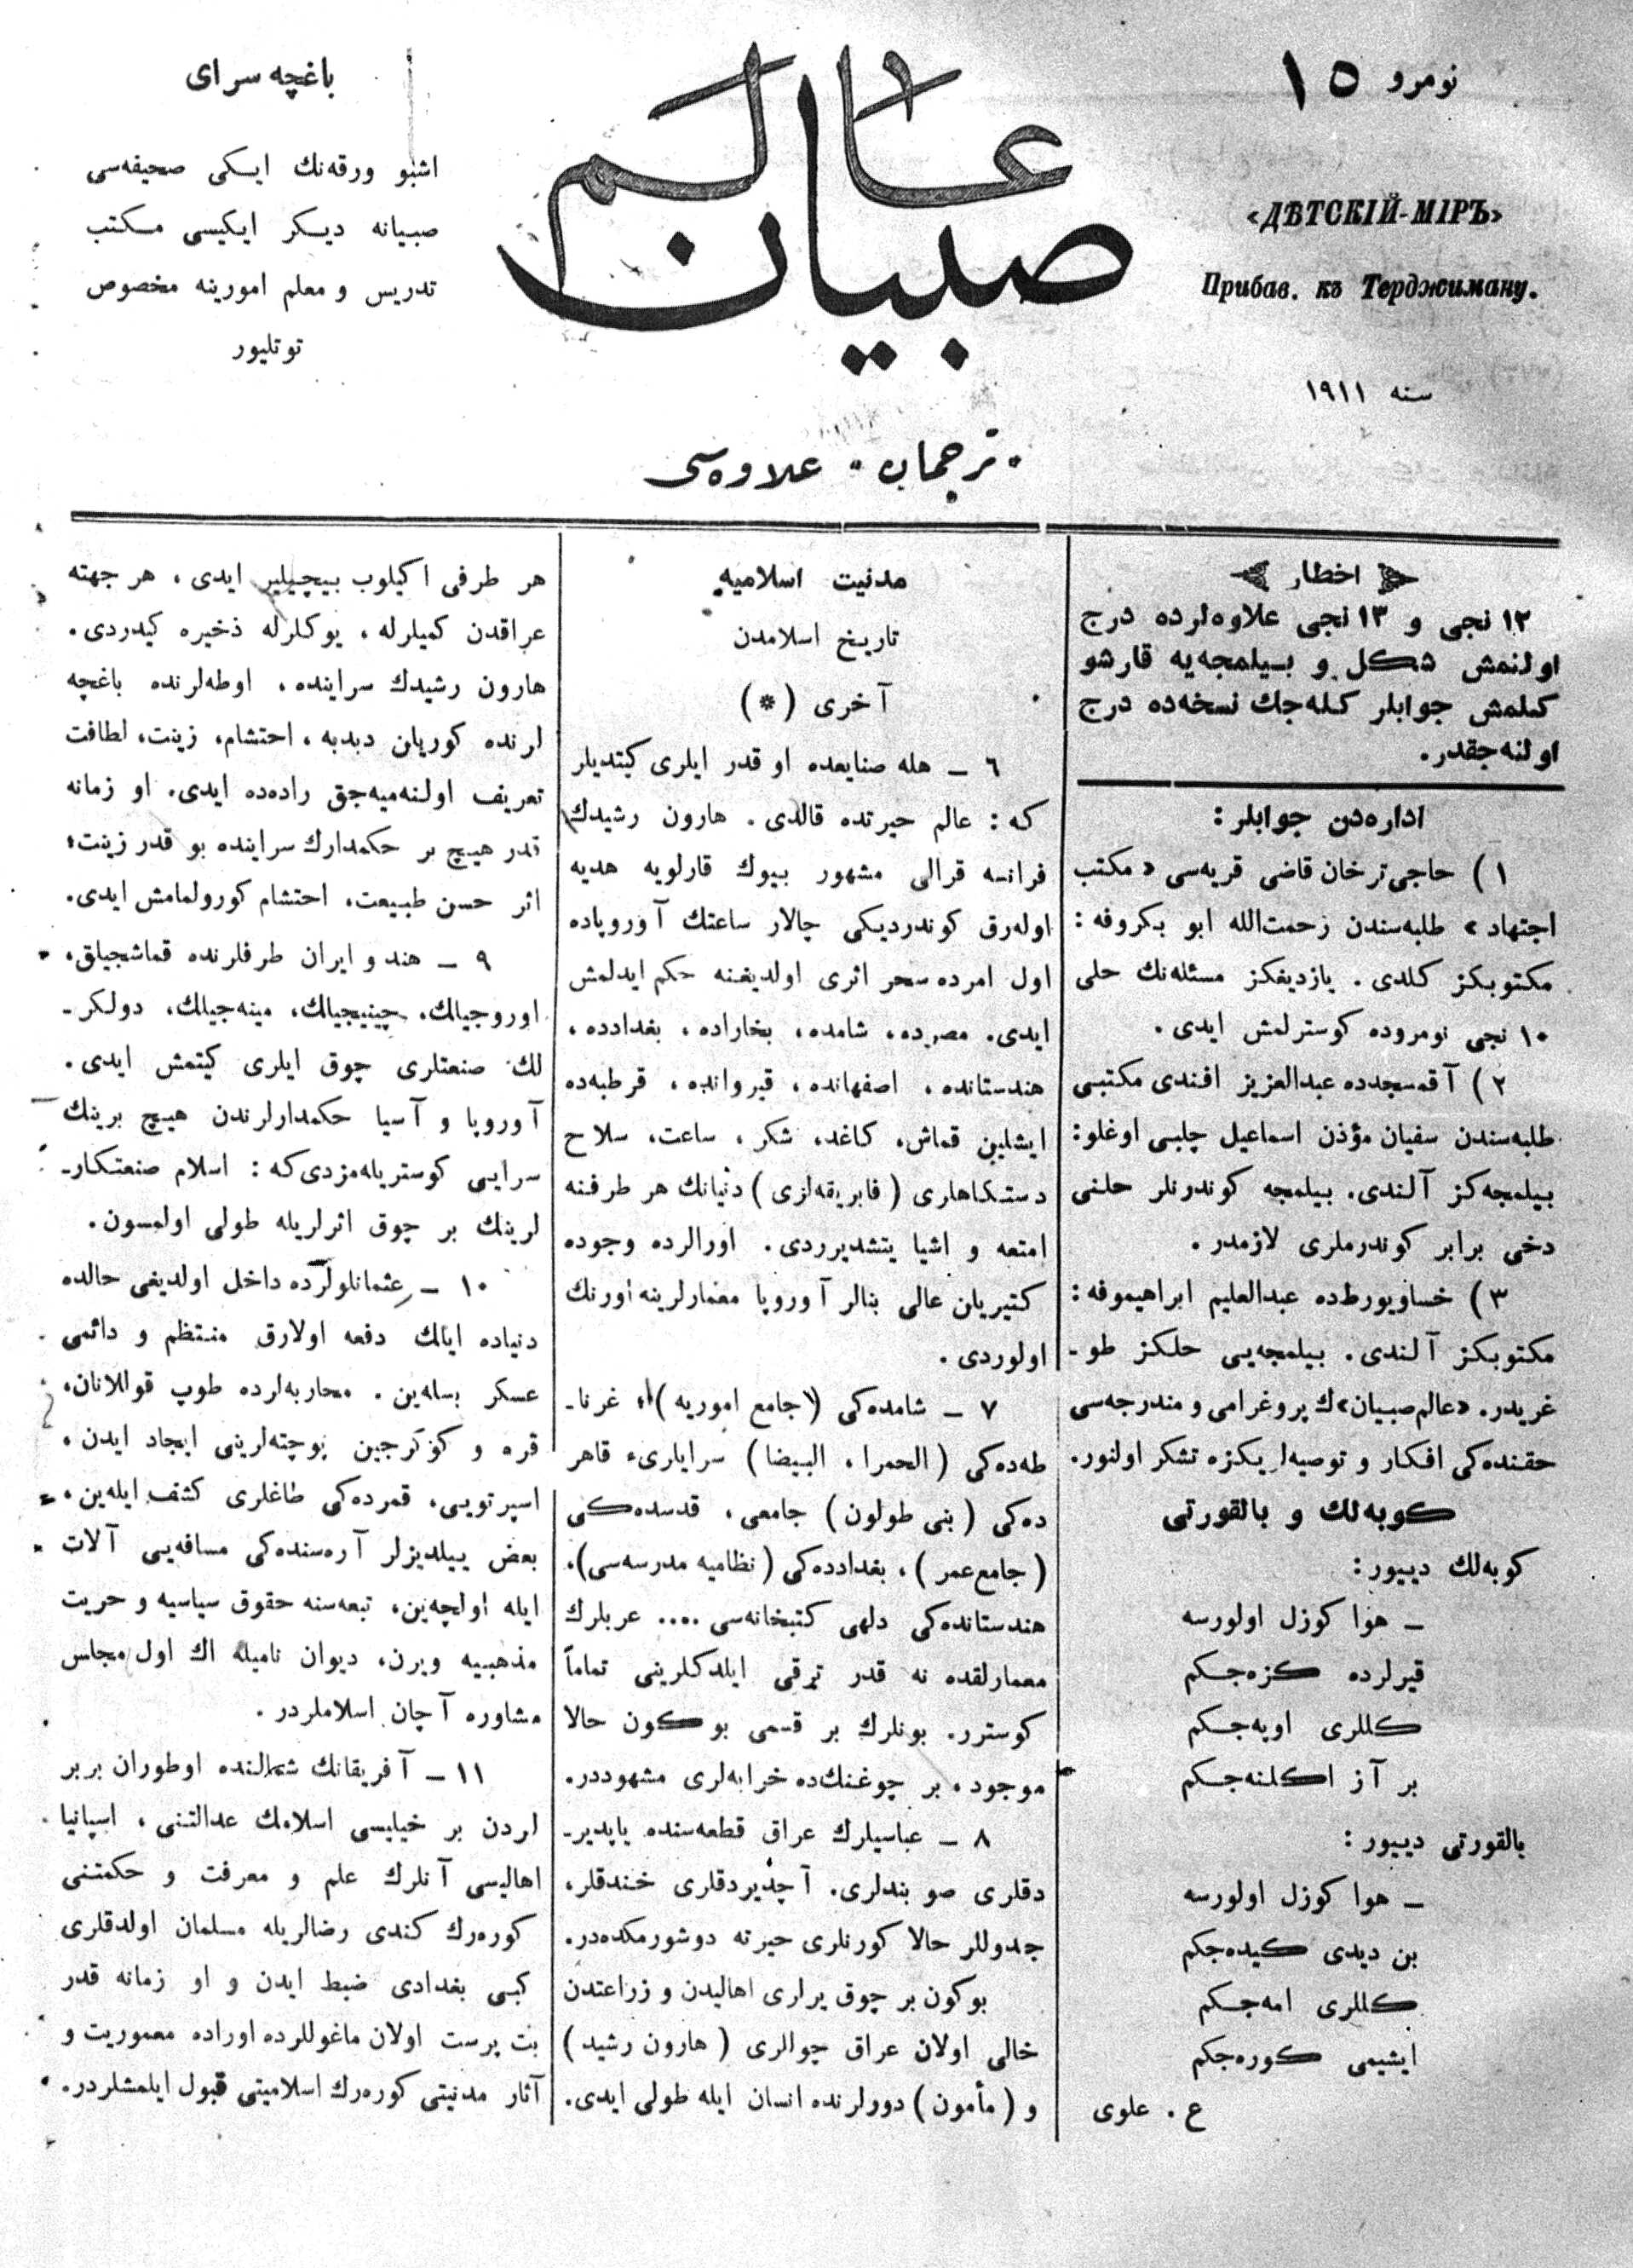 نومرو ١٥
«ДѢТСКІЙ-МІРЪ»
Прибав. къ Терджиману.
سنه ١٩١١
عالم صبيان
باغچه سراى
اشبو ورقه‌نك ايكى صحيفه‌سى
صبيانه ديكر ايكيسى مكتب
تدريس و معلم امورينه مخصوص
توتليور
ترجمان علاوه‌سى
اخطار
١٢ نجى و ١٣ نجى علاوه‌لرده درج
اولنمش شكل و بيلمجه‌يه قارشو
كلمش جوابلر كله‌جك نسخه‌ده درج
اولنه‌جقدر.
اداره‌دن جوابلر:
١) حاجى‌ترخان قاضى قريه‌سى «مكتب
اجتهاد» طلبه‌سندن زحمت‌الله ابو بكروفه:
مكتوبكز كلدى. يازديغكز مسئله‌نك حلى
١٠ نجى نومروده كوسترلمش ايدى.
٢) آقمسجدده عبدالعزيز افندى مكتبى
طلبه‌سندن سفيان مؤذن اسماعيل چلبى اوغلو:
بيلمجه‌كز آلندى. بيلمجه كوندرنلر حلنى
دخى برابر كوندرملرى لازمدر.
٣) خساويورطده عبدالعليم ابراهيموفه:
مكتوبكز آلندى. بيلمجه‌يى حلكز طو-
غريدر. «عالم صبيان»ك پروغرامى و مندرجه‌سى
حقنده‌كى افكار و توصيه‌لريكزه تشكر اولنور.
كوبه‌لك و بالقورتى
كوبه‌لك دييور:
— هوا كوزل اولورسه
قيرلرده كزه‌جكم
كللرى اوپه‌جكم
بر آز اكلنه‌جكم
بالقورتى دييور:
— هوا كوزل اولورسه
بن ديدى كيده‌جكم
كللرى امه‌جكم
ايشيمى كوره‌جكم
ع. علوى
مدنيت اسلاميه
تاريخ اسلامدن
آخرى (*)
٦ — هله صنايعده او قدر ايلرى كيتديلر
كه: عالم حيرتده قالدى. هارون رشيدك
فرانسه قرالى مشهور بيوك قارلويه هديه
اوله‌رق كوندرديكى چالار ساعتك آوروپاده
اول امرده سحر اثرى اولديغنه حكم ايدلمش
ايدى. مصرده، شامده، بخاراده، بغدادده،
هندستانده، اصفهانده، قيروانده، قرطبه‌ده
ايشلين قماش، كاغد، شكر، ساعت، سلاح
دستكاهارى (فابريقه‌لرى) دنيانك هر طرفنه
امتعه و اشيا يتشديرردى. اورالرده وجوده
كتيريان عالى بنالر آوروپا معمارلرينه اورنك
اولوردى.
٧ — شامده‌كى (جامع امويه)، غرنا-
طه‌ده‌كى (الحمرا، البيضا) سرايلارى، قاهر
ده‌كى (بنى طولون) جامعى، قدسده‌كى
(جامع عمر)، بغدادده‌كى (نظاميه مدرسه‌سى)،
هندستانده‌كى دلهى كتبخانه‌سى .... عربلرك
معمارلقده نه قدر ترقى ايلدكلرينى تماماً
كوسترر. بونلرك بر قسمى بوكون حالا
موجود، بر چوغنك‌ده خرابه‌لرى مشهوددر.
٨ — عباسيلرك عراق قطعه‌سنده ياپدير-
دقلرى صو بندلرى. آچديردقلرى خندقلر،
جدوللر حالا كورنلرى حيرته دوشورمكده‌در.
بوكون بر چوق يرلرى اهاليدن و زراعتدن
خالى اولان عراق چوللرى (هارون رشيد)
و (مأمون) دورلرنده انسان ايله طولى ايدى.
هر طرفى اكيلوب بيچيلير ايدى، هر جهته
عراقدن كميلرله، يوكلرله ذخيره كيدردى.
هارون رشيدك سراينده، اوطه‌لرنده باغچه
لرنده كوريان دبدبه، احتشام، زينت، لطافت
تعريف اولنه‌ميه‌جق راده‌ده ايدى. او زمانه
قدر هيچ بر حكمدارك سراينده بو قدر زينت،
اثر حسن طبيعت، احتشام كورولمامش ايدى.
٩ — هند و ايران طرفلرنده قماشجيلق،
اوروجيلك، چينيجيلك، مينه‌جيلك، دولكر-
لك صنعتلرى چوق ايلرى كيتمش ايدى.
آوروپا و آسيا حكمدارلرندن هيچ برينك
سرايى كوستريله‌مزدى كه: اسلام صنعتكار-
لرينك بر چوق اثرلريله طولى اولمسون.
١٠ — عثمانلولرده داخل اولديغى حالده
دنياده ايلك دفعه اولارق منتظم و دائمى
عسكر بسله‌ين. محاربه‌لرده طوپ قوللانان،
قره و كوكرجين پوچته‌لرينى ايجاد ايدن،
اسپرتويى، قمرده‌كى طاغلرى كشف ايله‌ين،
بعض ييلديزلر آره‌سنده‌كى مسافه‌يى آلات
ايله اولچه‌ين، تبعه‌سنه حقوق سياسيه و حريت
مذهبيه ويرن، ديوان ناميله اك اول مجلس
مشاوره آچان اسلاملردر.
١١ — آفريقانك شمالنده اوطوران بربر
لردن بر خيليسى اسلامك عدالتنى، اسپانيا
اهاليسى آنلرك علم و معرفت و حكمتنى
كوره‌رك كندى رضالريله مسلمان اولدقلرى
كبى بغدادى ضبط ايدن و او زمانه قدر
بت پرست اولان ماغوللرده اوراده معموريت و
آثار مدنيتى كوره‌رك اسلاميتى قبول ايلمشلردر.